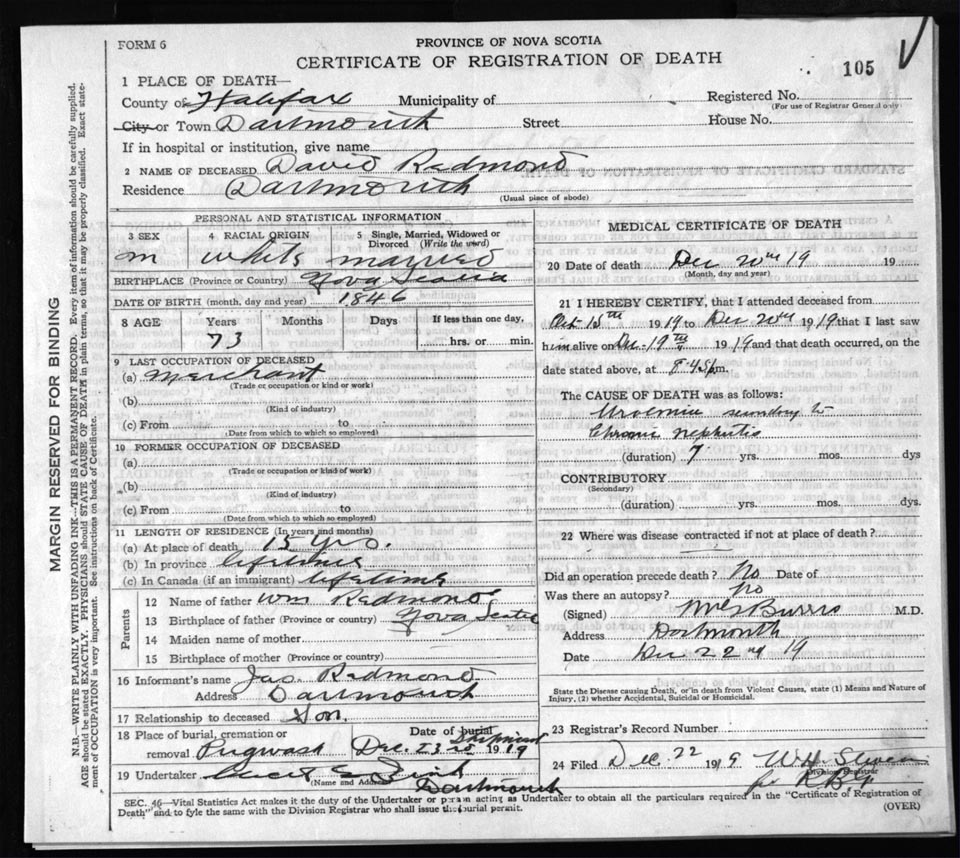 FORM 6
PROVINCE OF NOVA SCOTIA
CERTIFICATE OF REGISTRATION OF DEATH
105
1 PLACE OF DEATH—
County of Halifax Municipality of
Registered No.
(For use of Registrar General only)
City or Town Dartmouth Street
House No.
If in hospital or institution, give name
2 NAME OF DECEASED David Redmond
Residence Dartmouth
(Usual place of abode)
PERSONAL AND STATISTICAL INFORMATION
3 SEX 4 RACIAL ORIGIN 5 Single, Married, Widowed or Divorced (Write the word)
m white married
BIRTHPLACE (Province or Country) Nova Scotia
DATE OF BIRTH (month, day and year) 1846
8 AGE Years Months Days If less than one day,
73 hrs. or min.
9 LAST OCCUPATION OF DECEASED
(a) Merchant
(Trade or occupation or kind or work)
(b)
(Kind of industry)
(c) From to
(Date from which to which so employed)
10 FORMER OCCUPATION OF DECEASED
(a)
(Trade or occupation or kind of work)
(b)
(Kind of industry)
(c) From to
(Date from which to which so employed)
11 LENGTH OF RESIDENCE (In years and months)
(a) At place of death 15 yrs.
(b) In province lifetime
(c) In Canada (if an immigrant) lifetime
Parents
12 Name of father Wm Redmond
13 Birthplace of father (Province or country) Nova Scotia
14 Maiden name of mother
15 Birthplace of mother (Province or country)
16 Informant's name Jas. Redmond
Address Dartmouth
17 Relationship to deceased Son.
18 Place of burial, cremation or removal Pugwash
Date of burial Shipment
Dec. 23rd 1919
19 Undertaker
(Name and Address)
Dartmouth
MEDICAL CERTIFICATE OF DEATH
20 Date of death Dec 20th 19 19
(Month, day and year)
21 I HEREBY CERTIFY, that I attended deceased from
Oct 15th 1919 to Dec 20th 1919 that I last saw
him alive on Dec 19th 1919 and that death occurred, on the
date stated above, at 8.45 pm.
The CAUSE OF DEATH was as follows:
Uroemia secondary to
Chronic Nephritis
(duration) 7 yrs. mos. days
CONTRIBUTORY
(Secondary)
(duration) yrs. mos. dys.
22 Where was disease contracted if not at place of death?
Did an operation precede death? No Date of
Was there an autopsy? No
(Signed) M.D.
Address Dartmouth
Date Dec 22nd 19
State the Disease causing Death, or in death from Violent Causes, state (1) Means and Nature of
Injury, (2) whether Accidental, Suicidal or Homicidal.
23 Registrar's Record Number
24 Filed Dec 22 1919
Division Registrar
SEC. 46—Vital Statistics Act makes it the duty of the Undertaker or person acting as Undertaker to obtain all the particulars required in the "Certificate of Registration of
Death" and to fyle the same with the Division Registrar who shall issue the burial permit.
(OVER)
MARGIN RESERVED FOR BINDING
N.B.—WRITE PLAINLY WITH UNFADING INK—THIS IS A PERMANENT RECORD. Every item of information should be carefully supplied.
AGE should be stated EXACTLY. PHYSICIANS should STATE CAUSE OF DEATH in plain terms, so that it may be properly classified. Exact state-
ment of OCCUPATION is very important. See instructions on back of Certificate.